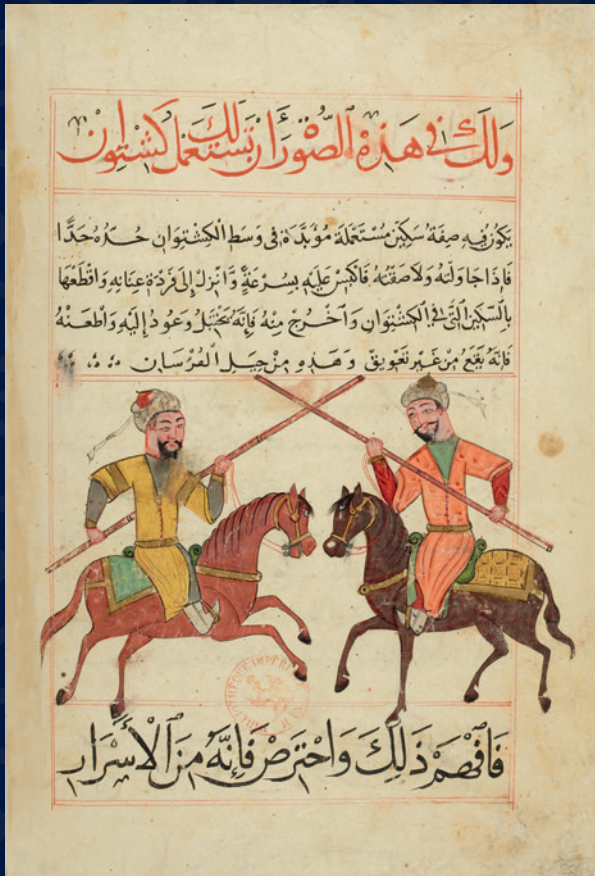 ولك في هذه الصورة أن تستعمل كشتوان
يكون فيه صفة سكين مستعملة مؤبدة في وسط الكشتوان حده حدا
فإذا جاولته ولاصقته فاكبس عليه بسرعة وانزل إلى فردة عنانه واقطعها
بالسكين التي في الكشتوان وآخرج منه فإنه يختبل وعود إليه واطعنه
فإنه يقع من غير تعويق وهذه من حيل الفرسان
BIBLIOTHÈQUE IMPÉRIALE
فافهم ذلك واحترص فإنه من الأسرار